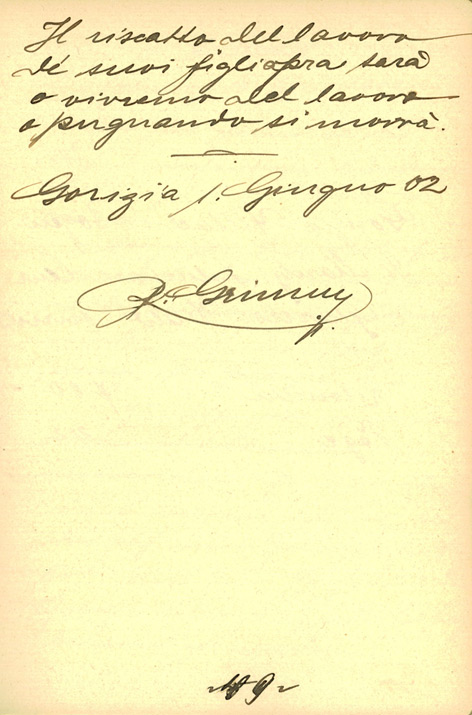 Il riscatto del lavoro
de' suoi figli opra sarà
o vivremo del lavoro
o pugnando si morrà.
Gorizia 1. Giugno 02
9